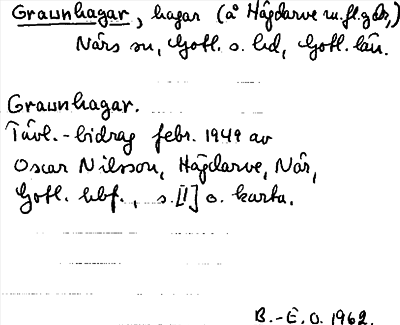 Graunhagar, hagar (å Hägdarve m.fl. gdr,)
Närs sn, Gotl. s. hd, Gotl. län.
Graunhagar.
Tävl.-bidrag febr. 1949 av
Oscar Nilsson, Hägdarve, När,
Gotl. hbf., s. [1] o. karta.
B.-E.O. 1962.